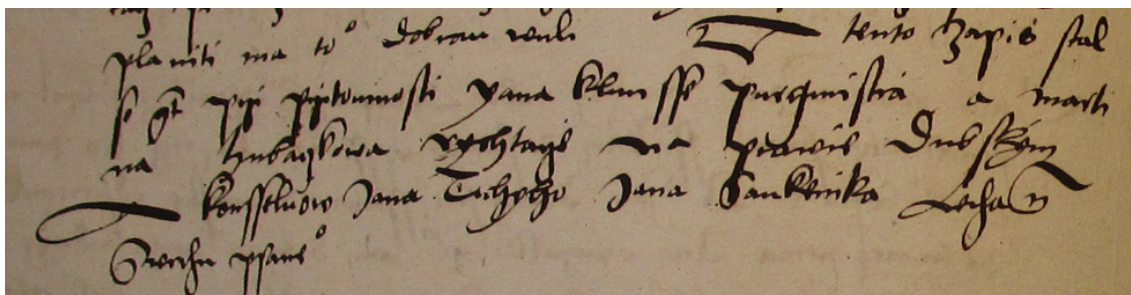 planiti ma to° dobrau wuli T tento zapis stal
se gt przi przitomnosti yana klusse purgmistra a marti
na hubaczkowa rychtarze na prawie Dubskym
konsseluow Jana Tichyho Jana Sankenika
Swrchu psane°